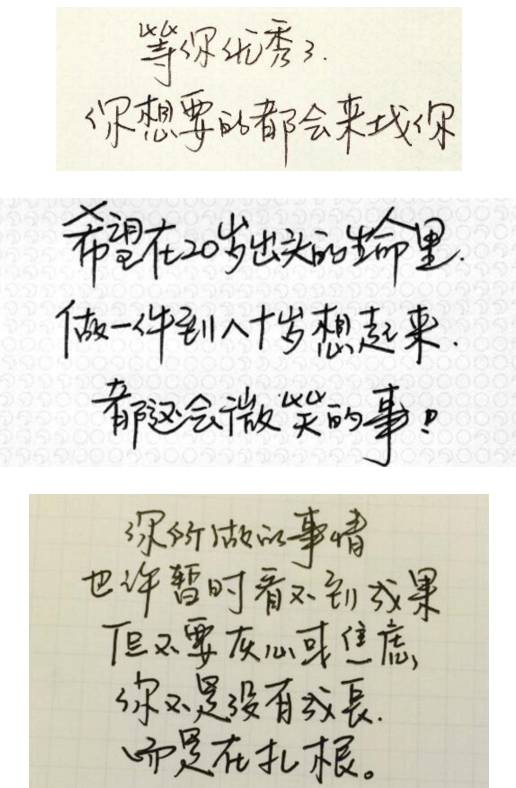 等你优秀了.
你想要的都会来找你
希望在20岁出头的生命里.
做一件到八十岁想起来.
都还会微笑的事!
你所做的事情
也许暂时看不到成果
但不要灰心或焦虑,
你不是没有成长.
而是在扎根。